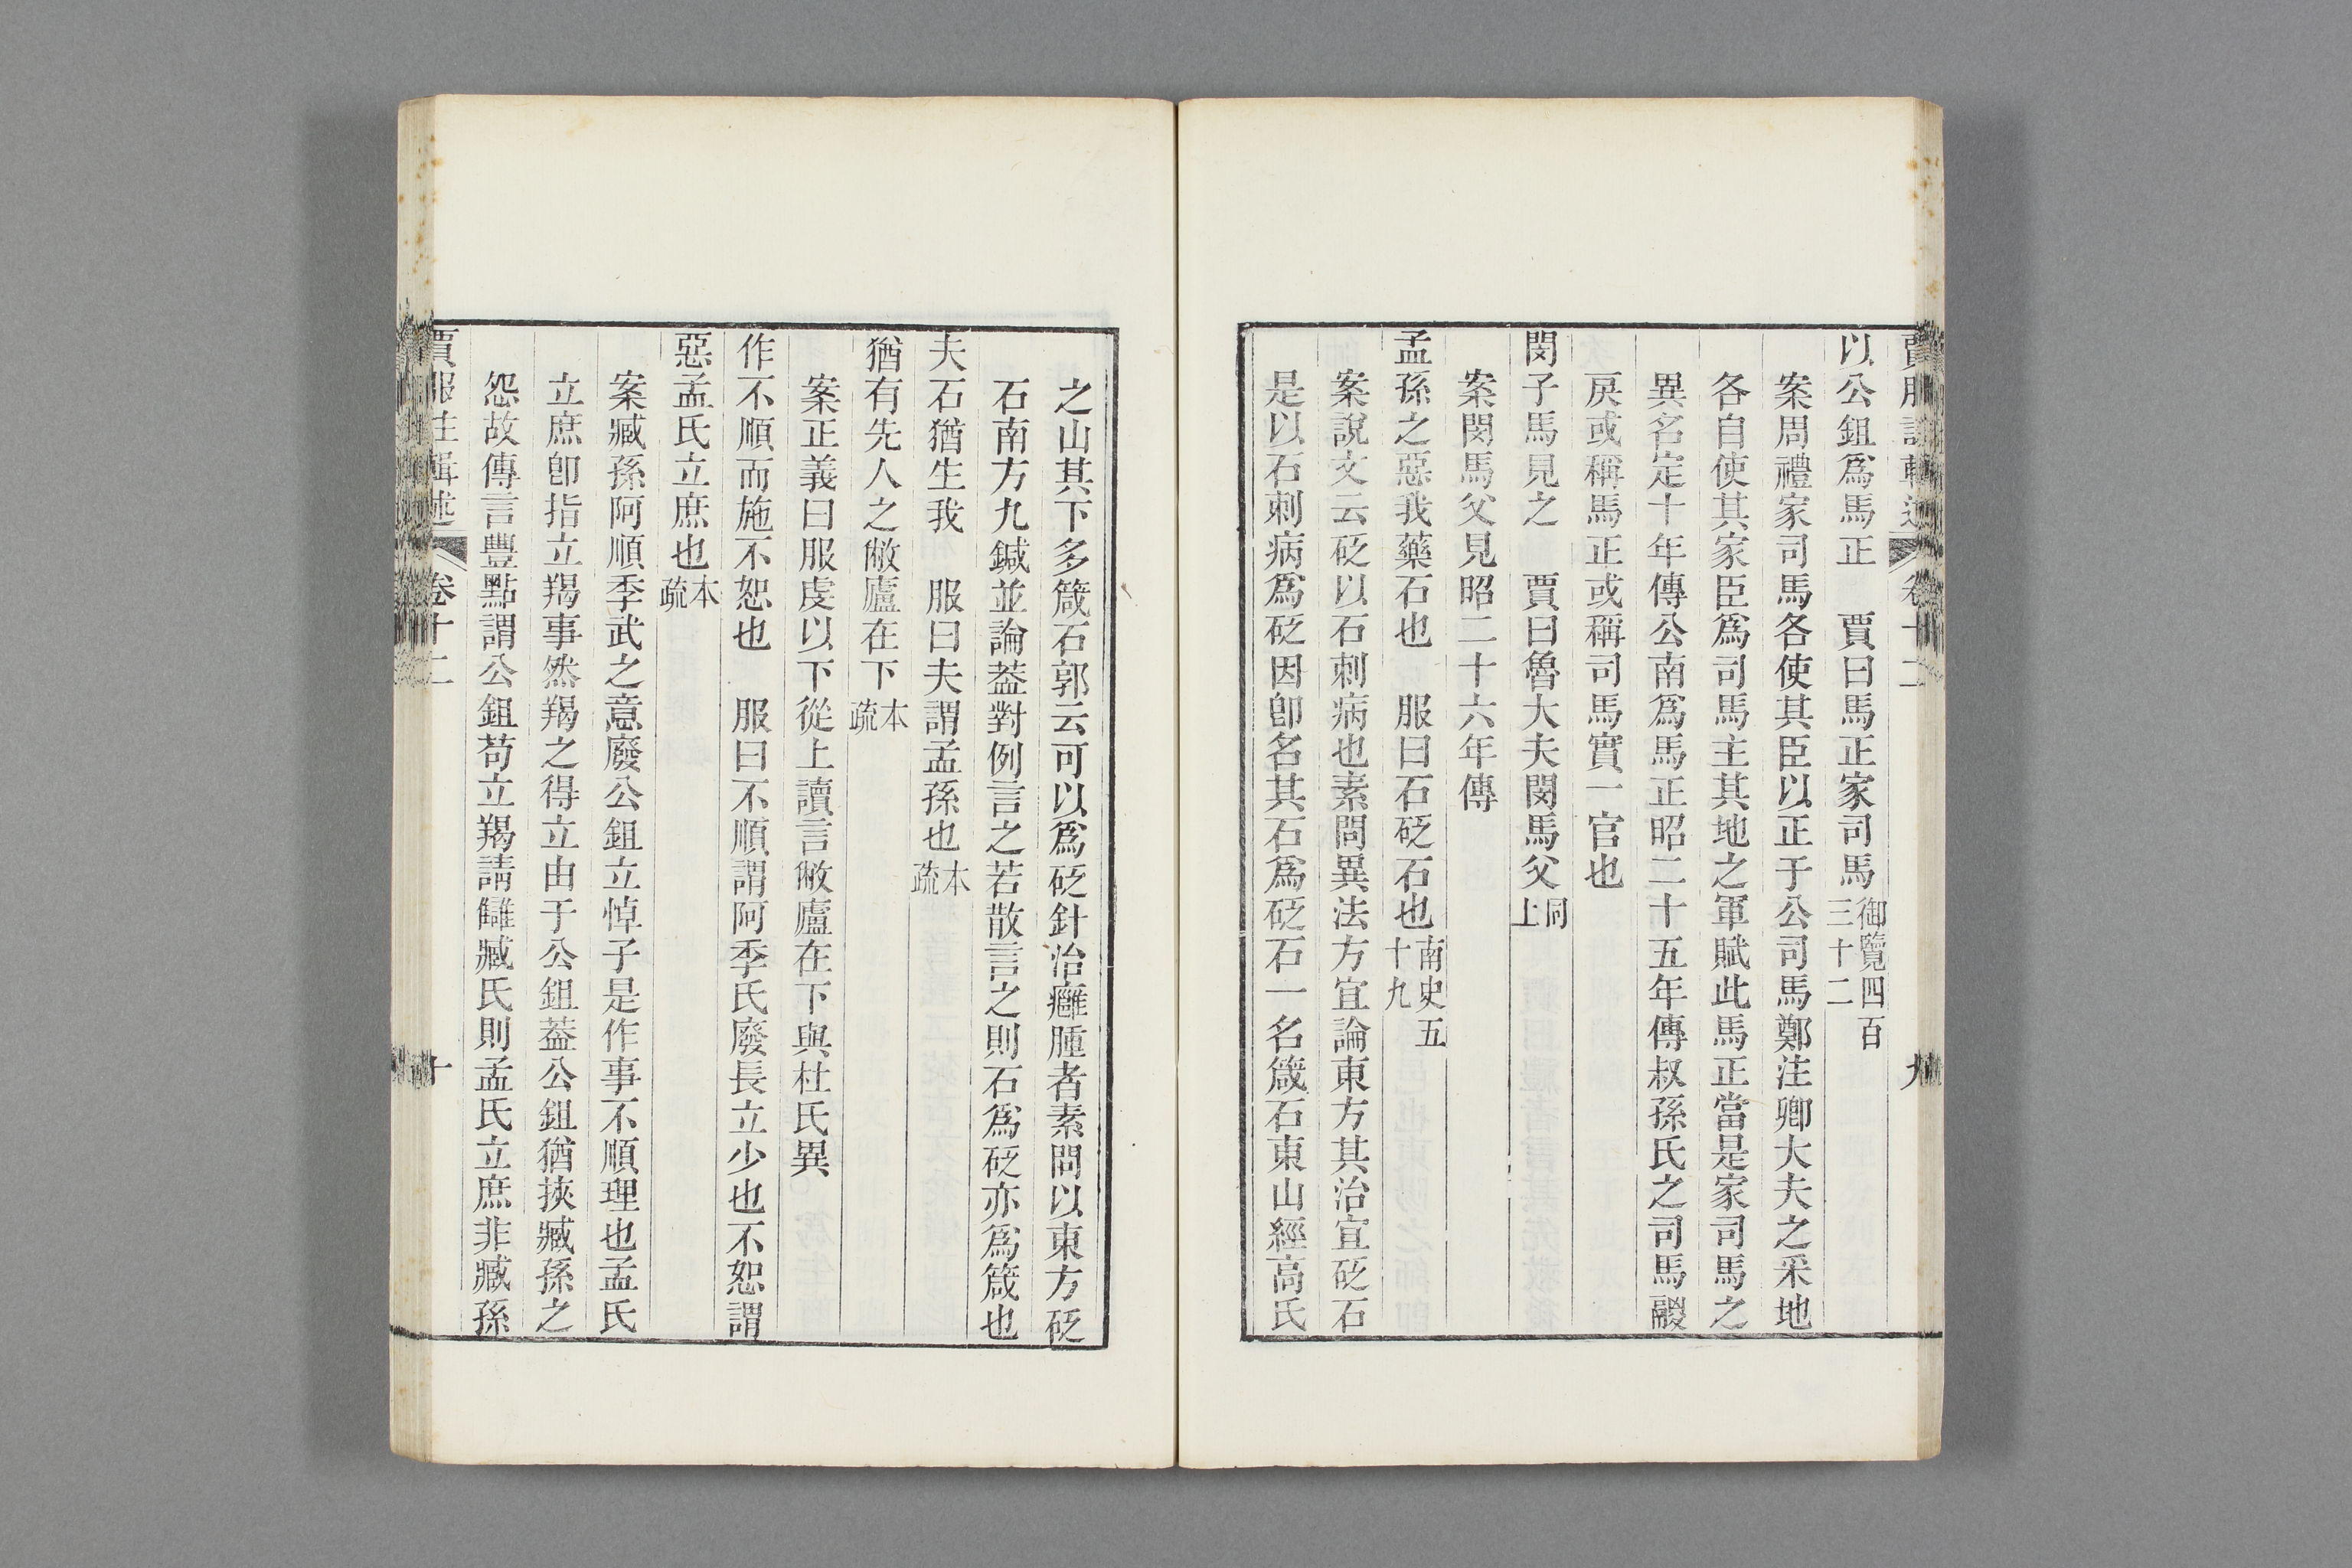 賈服注輯述 卷十二 九
以公鉏爲馬正 賈曰馬正家司馬御覽四百三十二
案周禮家司馬各使其臣以正于公司馬鄭注卿大夫之采地
各自使其家臣爲司馬主其地之軍賦此馬正當是家司馬之
異名定十年傳公南爲馬正昭二十五年傳叔孫氏之司馬鬷
戾或稱馬正或稱司馬實一官也
閔子馬見之 賈曰魯大夫閔馬父同上
案閔馬父見昭二十六年傳
孟孫之惡我藥石也 服曰石砭石也南史五十九
案說文云砭以石刺病也素問異法方宜論東方其治宜砭石
是以石刺病爲砭因卽名其石爲砭石一名箴石東山經高氏
之山其下多箴石郭云可以爲砭針治癰腫者素問以東方砭
石南方九鍼並論葢對例言之若散言之則石爲砭亦爲箴也
夫石猶生我 服曰夫謂孟孫也本疏
猶有先人之敝廬在下本疏
案正義曰服虔以下從上讀言敝廬在下與杜氏異
作不順而施不恕也 服曰不順謂阿季氏廢長立少也不恕謂
惡孟氏立庶也本疏
案臧孫阿順季武之意廢公鉏立悼子是作事不順理也孟氏
立庶卽指立羯事然羯之得立由于公鉏葢公鉏猶挾臧孫之
怨故傳言豐點謂公鉏苟立羯請讎臧氏則孟氏立庶非臧孫
賈服注輯述 卷十二 十